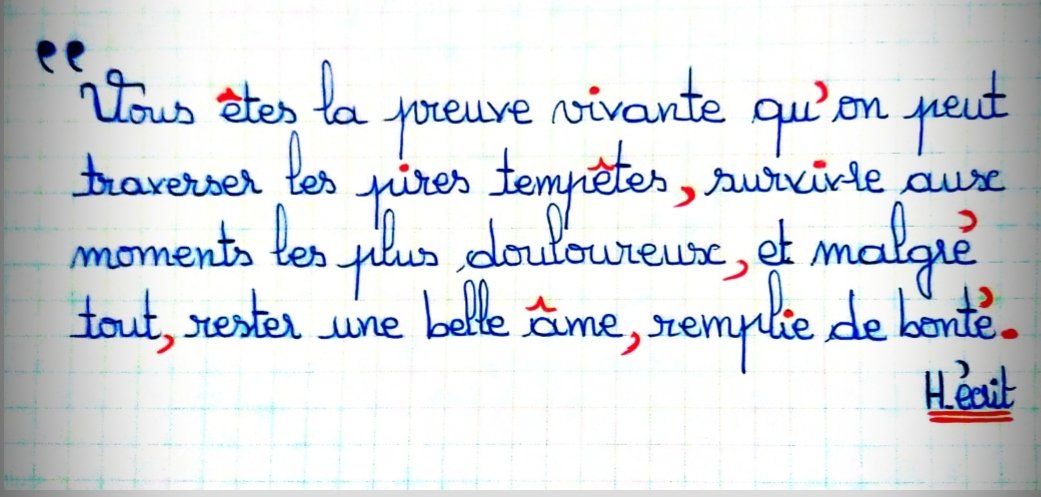 “Vous êtes la preuve vivante qu'on peut
traverser les pires tempêtes, survivre aux
moments les plus douloureux, et malgré
tout, rester une belle âme, remplie de bonté.
H.écrit